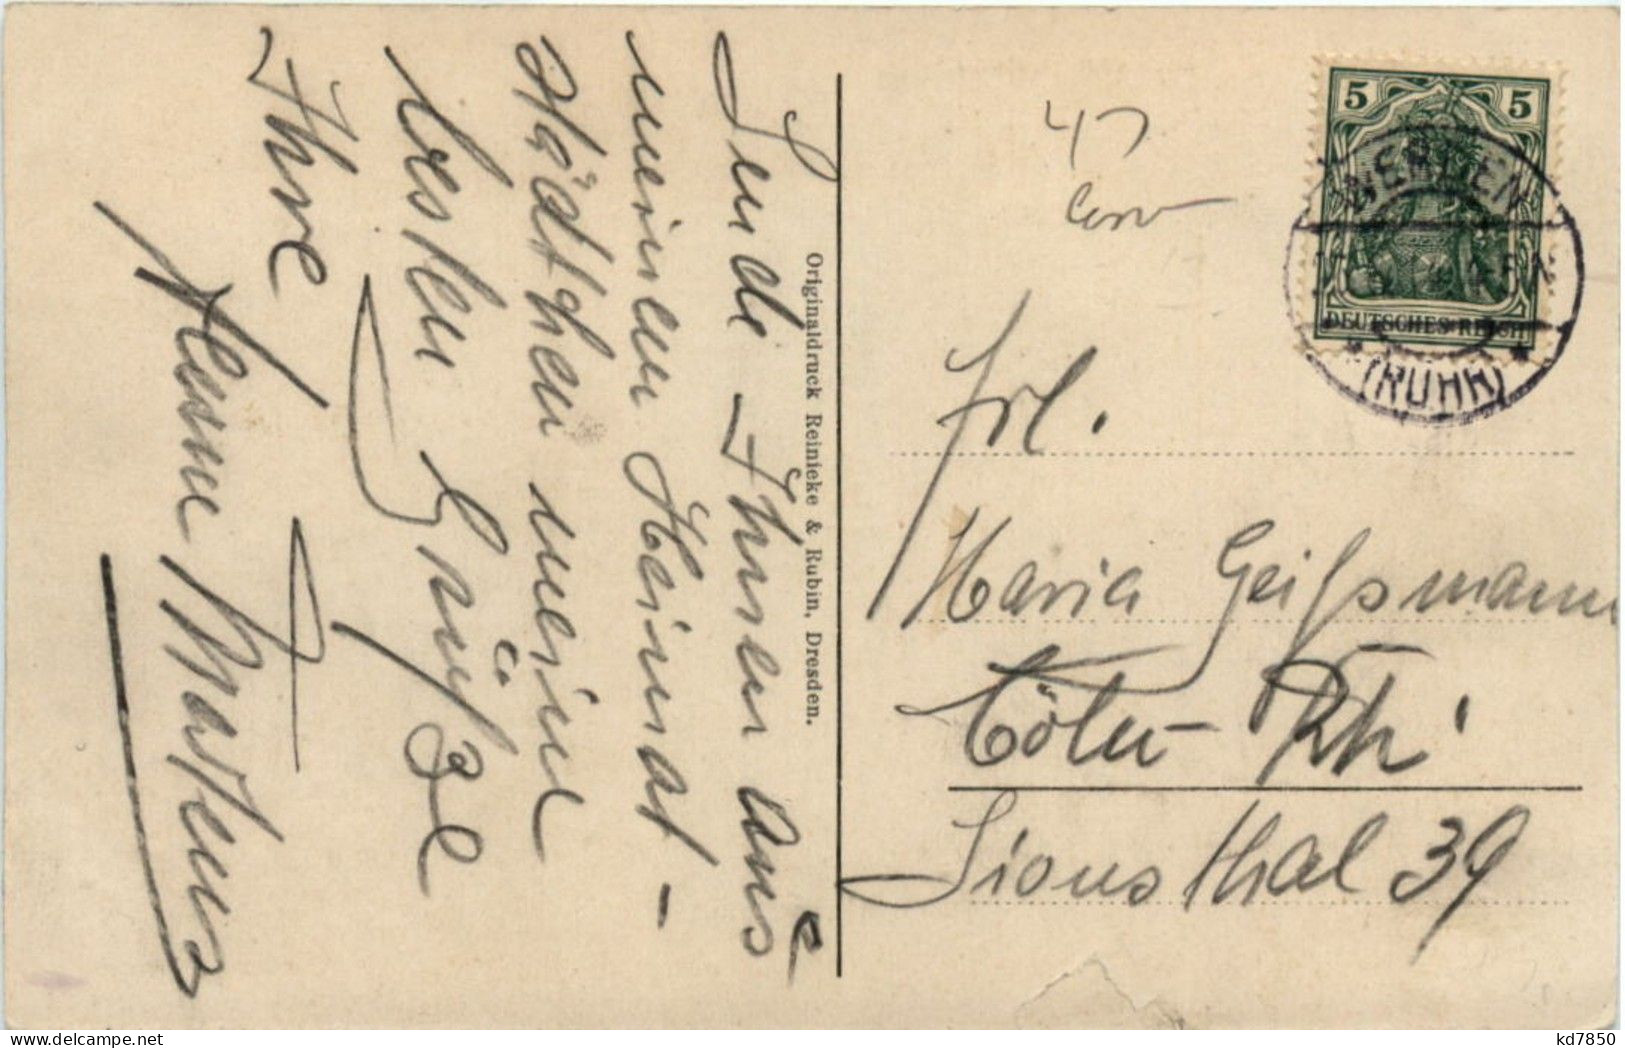 Sende Ihnen aus
meinem Heimat-
städtchen meine
besten Grüße
Ihre
Martens
Originaldruck Reinicke & Rubin, Dresden.
47
5 5
DEUTSCHES REICH
WERDEN
(RUHR)
Frl.
Maria Geißmann
Cöln Rh.
Sionsthal 39
kd7850